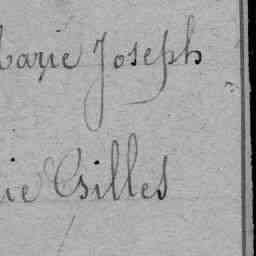 Marie Joseph
ie Gilles